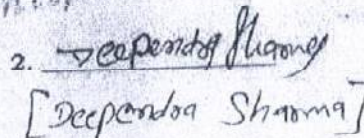 2. Deependra Sharma
[Deependra Sharma]